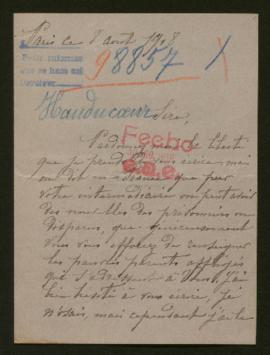 Paris le 8 août 1918
Pedir informes
98857
Devolver
Handucœur
Sire,
Pardonnez moi la liberté
que je prend de vous écrire, mais
on dit que par
votre intermédiaire on peut avoir
des nouvelles des prisonniers ou
disparus, que généreusement
Vous vous efforcez de renseigner
les pauvres parents affligés
que s'adressent à Vous. J'ai
bien hésité à vous écrire, je
n'osais, mais cependant j'ai le
Fecho